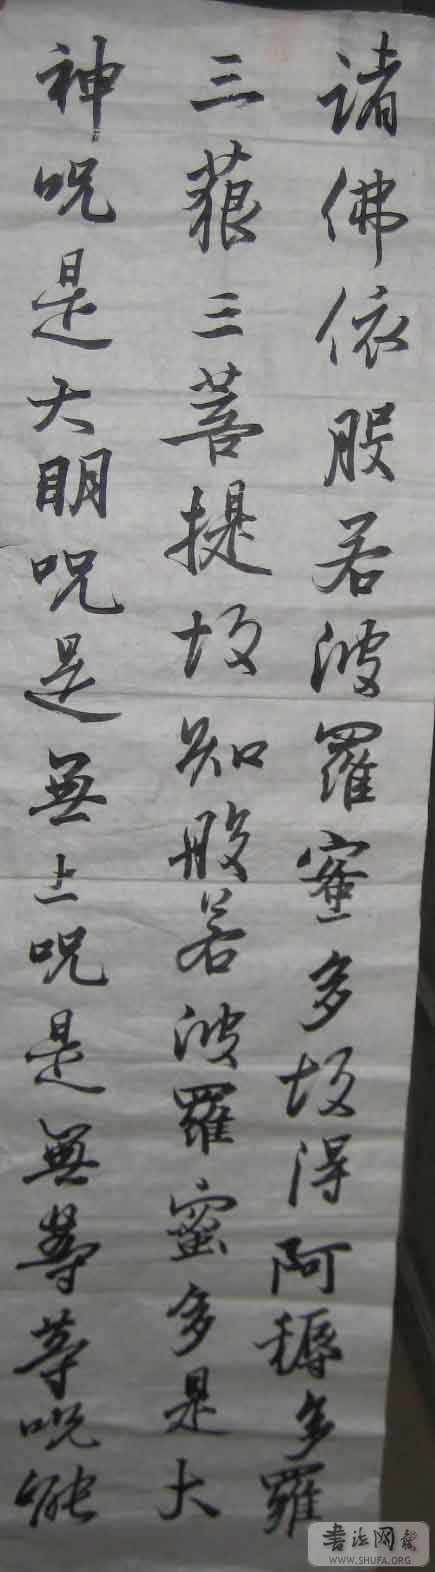 諸佛依般若波羅蜜多故得阿耨多羅
三藐三菩提故知般若波羅蜜多是大
神咒是大明咒是無上咒是無等等咒能
書法网
WWW.SHUFA.ORG